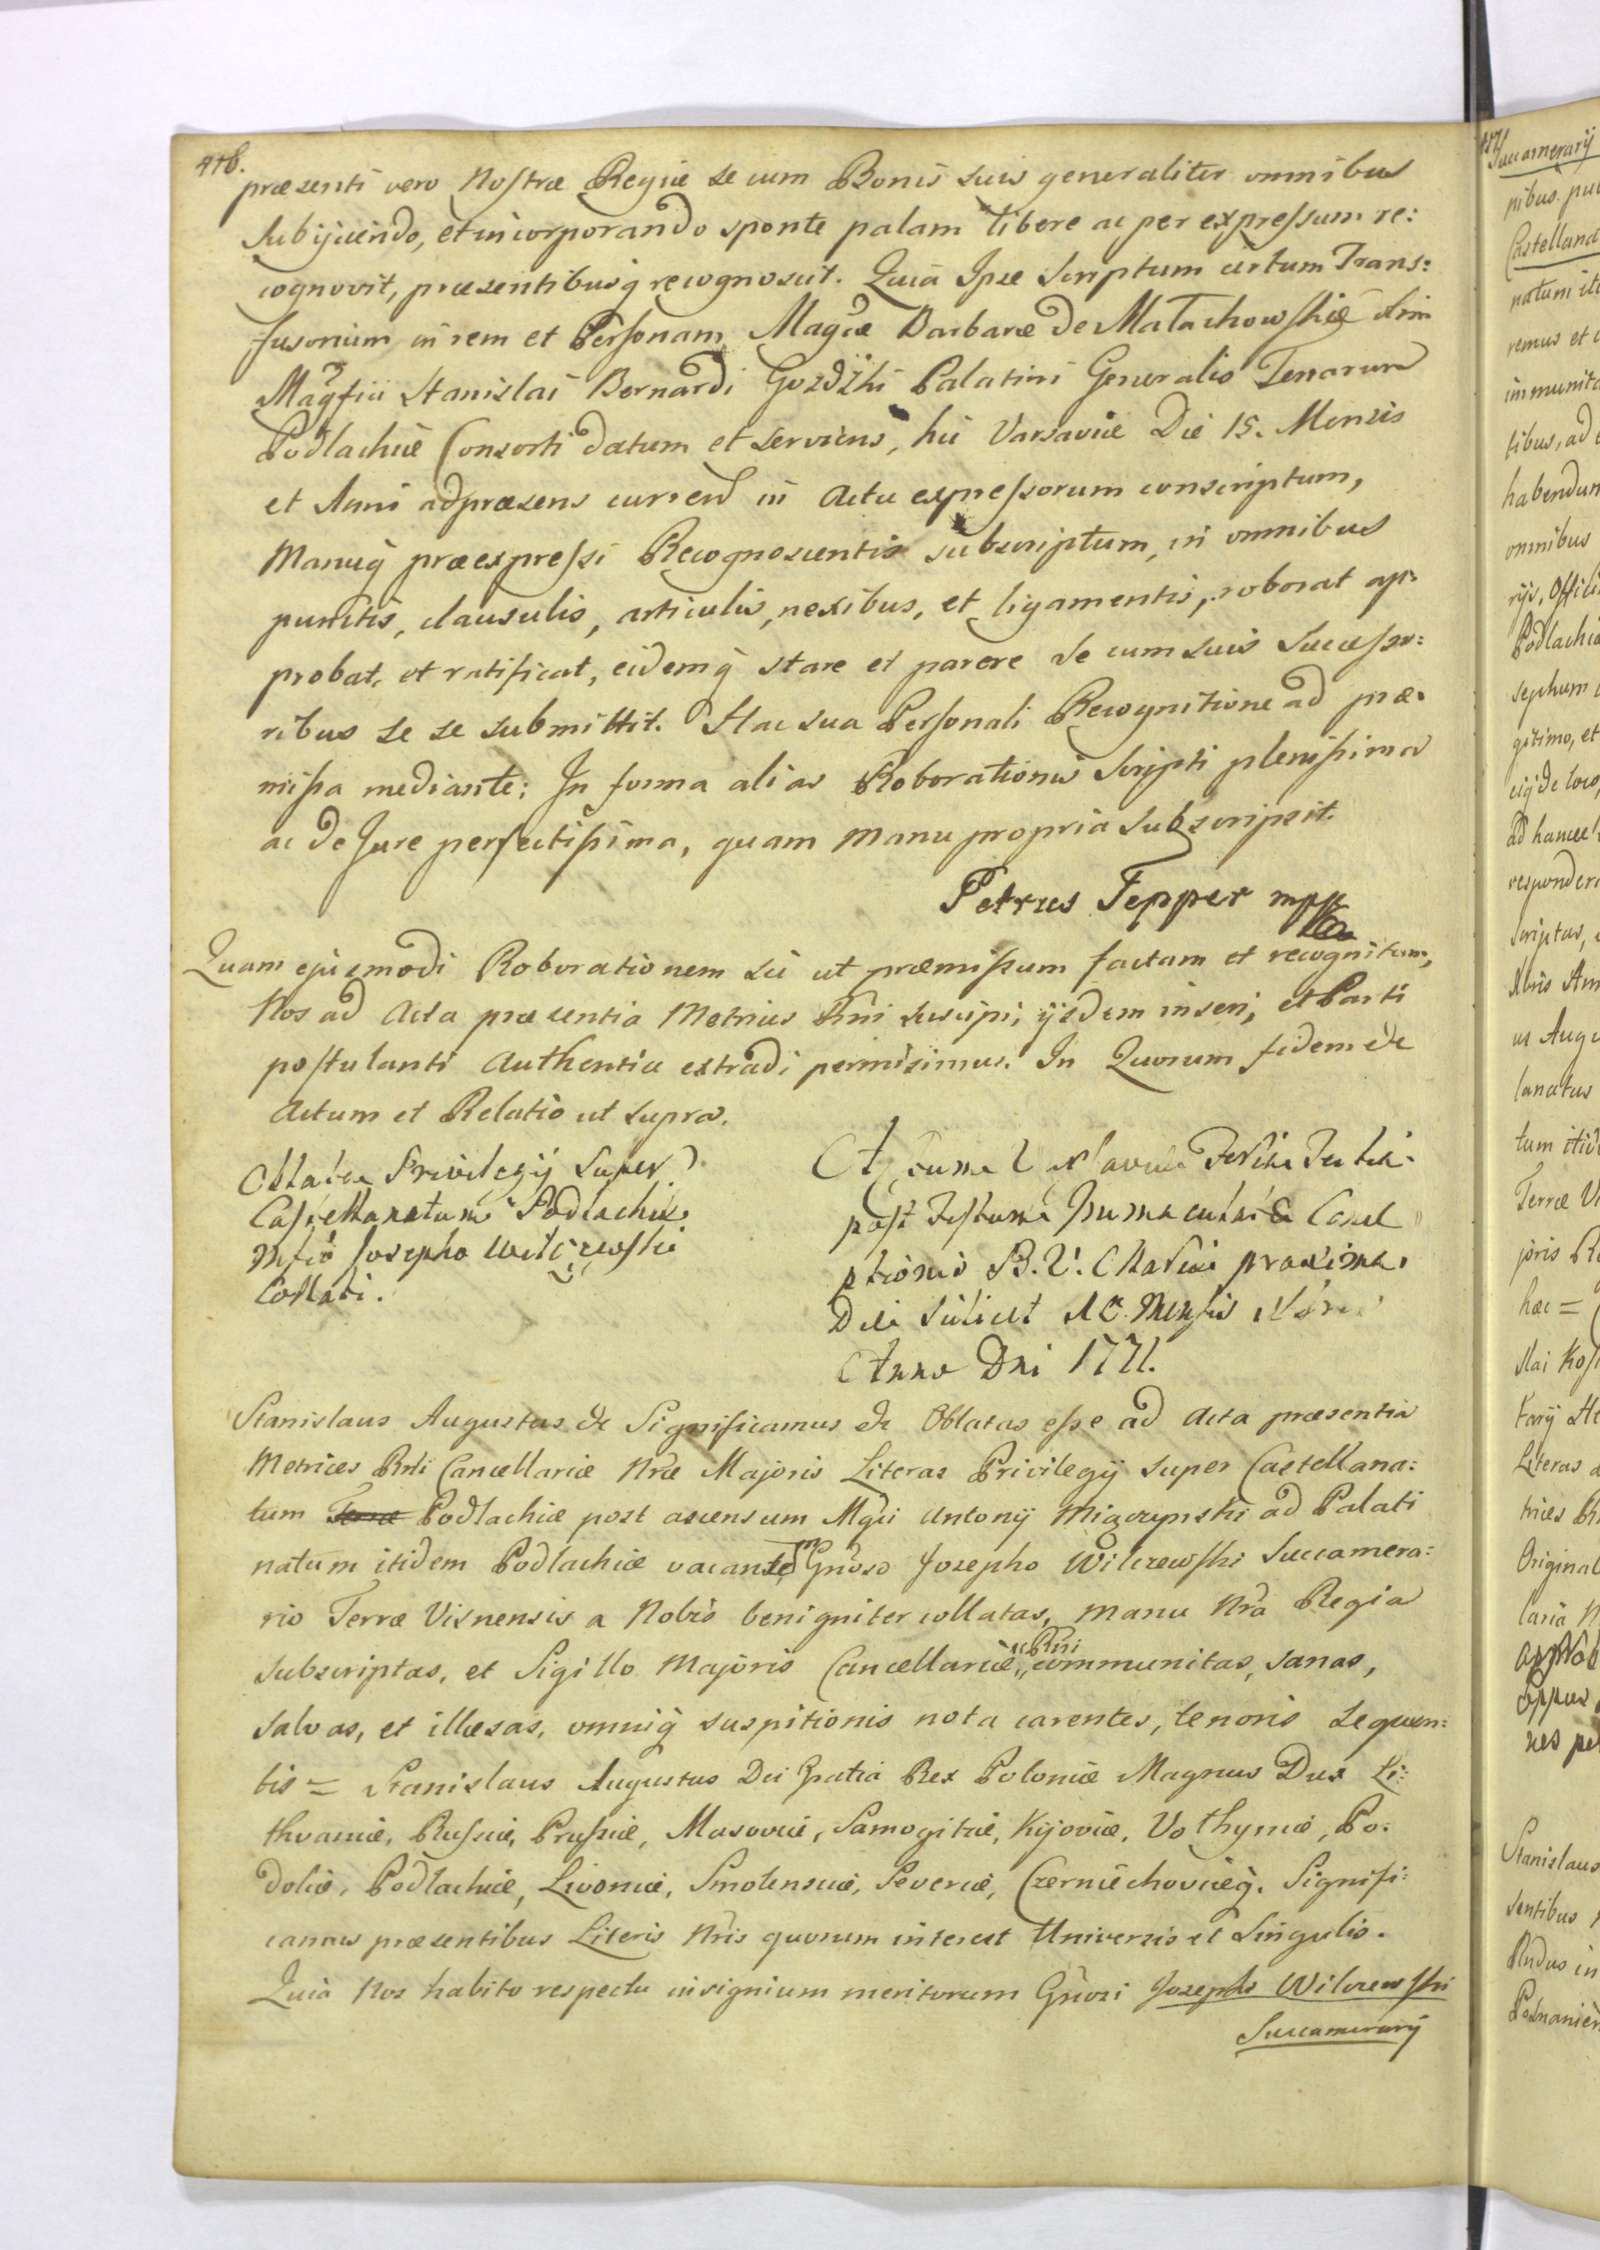 416.
præsenti vero Nostræ Regiæ se cum Bonis suis generaliter omnibus
subijciendo, et incorporando sponte palam libere ac per expressum re:
cognovit, præsentibusq́ recognoscit. Quia Ipse Scriptum certum Trans:
fusorium in rem et Personam Magcæ Barbaræ de Małachowskie olim
Magfici Stanislai Bernardi Gozdzki Palatini Generalis Terrarum
Podlachiæ Consorti datum et serviens, hic Varsaviæ Die 15. Mensis
et Anni adpræsens curren in Actu expressorum conscriptum,
Manuq́ præexpressi Recognoscentis subscriptum, in omnibus
punctis, clausulis, articulis, nexibus, et ligamentis, roborat ap:
probat, et ratificat, eidemq́ stare et parere se cum suis Successo:
ribus se se submittit. Hac sua Personali Recognitione ad præ:
missa mediante; In forma alias Roborationis Scripti plenissima
ac de Jure perfectissima, quam manu propria subscripsit.
Petrus Tepper mpp
Quam ejusmodi Roborationem sic ut præmissum factam et recognitam,
Nos ad Acta præsentia Metrices Rni suscipi, ijsdem inseri, et Parti
postulanti Authentice extradi permisimus. In Quorum fidem &c
Actum et Relatio ut supra.
Oblata Privilegij Super
Castellanatum Podlachiæ
Mfco Josepho Wilczewski
Collati.
Actum Varsaviæ Feria Tertia
post Festum Immaculatæ Conce
ptionis B. V. Mariæ proxima.
Die scilicet 10. Mensis
Anno Dni 1771.
Stanislaus Augustus &c Significamus &c Oblatas esse ad Acta præsentia
Metrices Rni Cancellariæ Nræ Majoris Literas Privilegij super Castellana:
tum Terræ Podlachiæ post ascensum Mgci Antonij Miączynski ad Palati
natum itidem Podlachiæ vacantem Gnoso Josepho Wilczewski Succamera:
rio Terræ Visnensis a Nobis benigniter collatas, manu Nra Regia
subscriptas, et Sigillo Majoris Cancellariæ Rni communitas, sanas,
salvas, et illæsas, omniq́ suspitionis nota carentes, tenoris sequen:
tis = Stanislaus Augustus Dei Gratia Rex Poloniæ Magnus Dux Li:
thvaniæ, Russiæ, Prussiæ, Masoviæ, Samogitiæ, Kijoviæ, Volhyniæ, Po:
doliæ, Podlachiæ, Livoniæ, Smolensciæ, Severiæ, Czerniechoviæq́. Signifi:
camus præsentibus Literis Nris quorum interest Universis et Singulis.
Quia Nos habito respectu insignium meritorum Gnosi Josephi Wilczewski
Succamerarij
Succamerarij
Castellana
natum
remus et
immunita
tibus, ad
habendum
omnibus
rijs, Offici
Podlachiæ
sephum
gitimo, et
eijsde loco,
respondere
scriptas,
ut Augu
lanatus
tum itid
Terræ
joris
hæc =
slai
Literas
trices
Original
laria
Stanislaus
sentibus